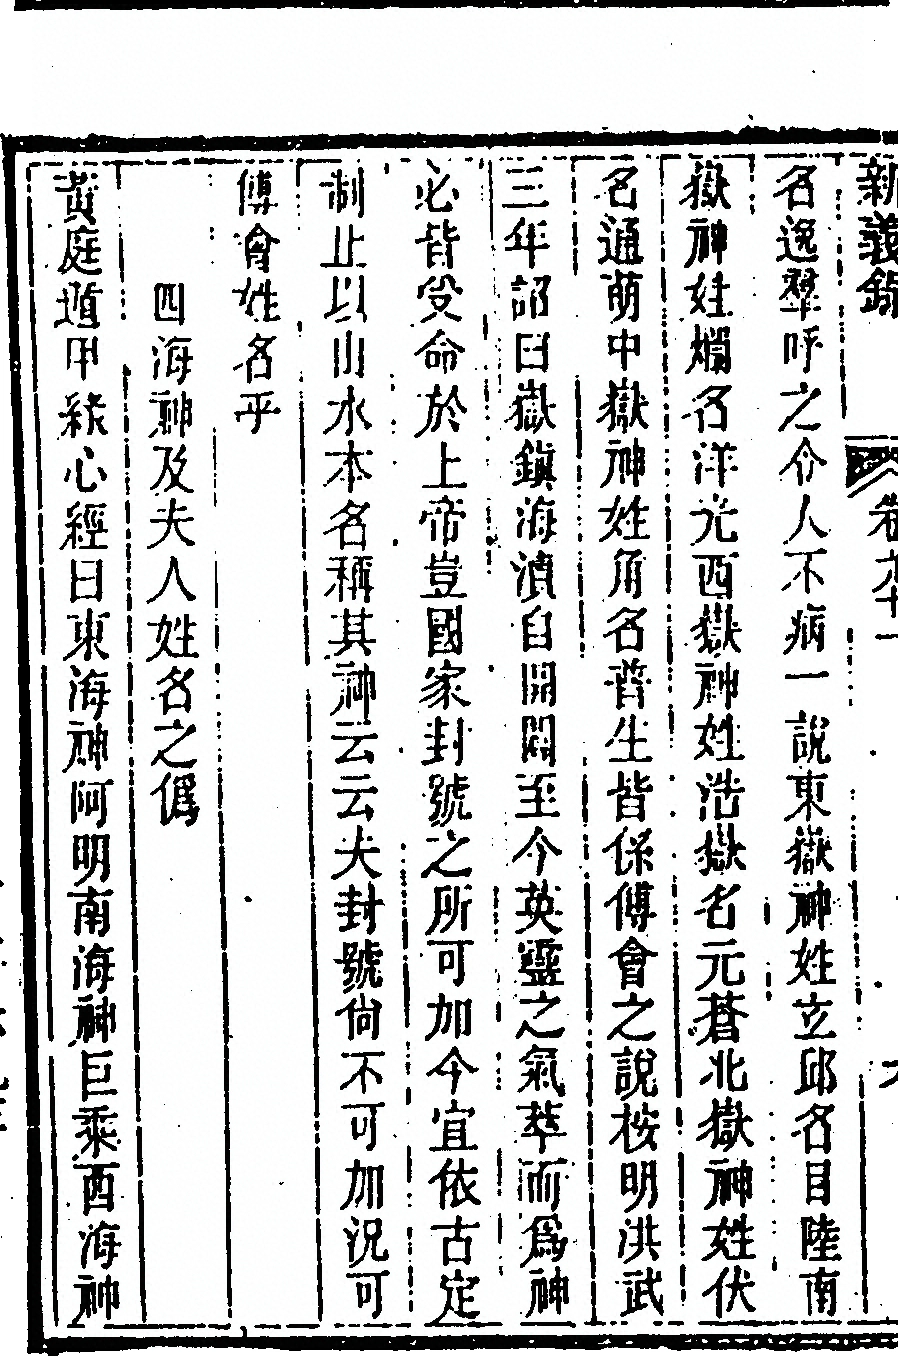 新義錄 卷九十一
名逸羣呼之令人不病一說東嶽神姓立邱名目陸南
嶽神姓爛名洋光西嶽神姓浩嶽名元蒼北嶽神姓伏
名通萌中嶽神姓角名普生皆係傅會之說桉明洪武
三年詔曰嶽鎭海瀆自開闢至今英靈之氣萃而爲神
必皆受命於上帝豈國家封號之所可加今宜依古定
制止以山水本名稱其神云云夫封號尙不可加況可
傅會姓名乎
四海神及夫人姓名之僞
黃庭遁甲綠心經曰東海神阿明南海神巨乘西海神